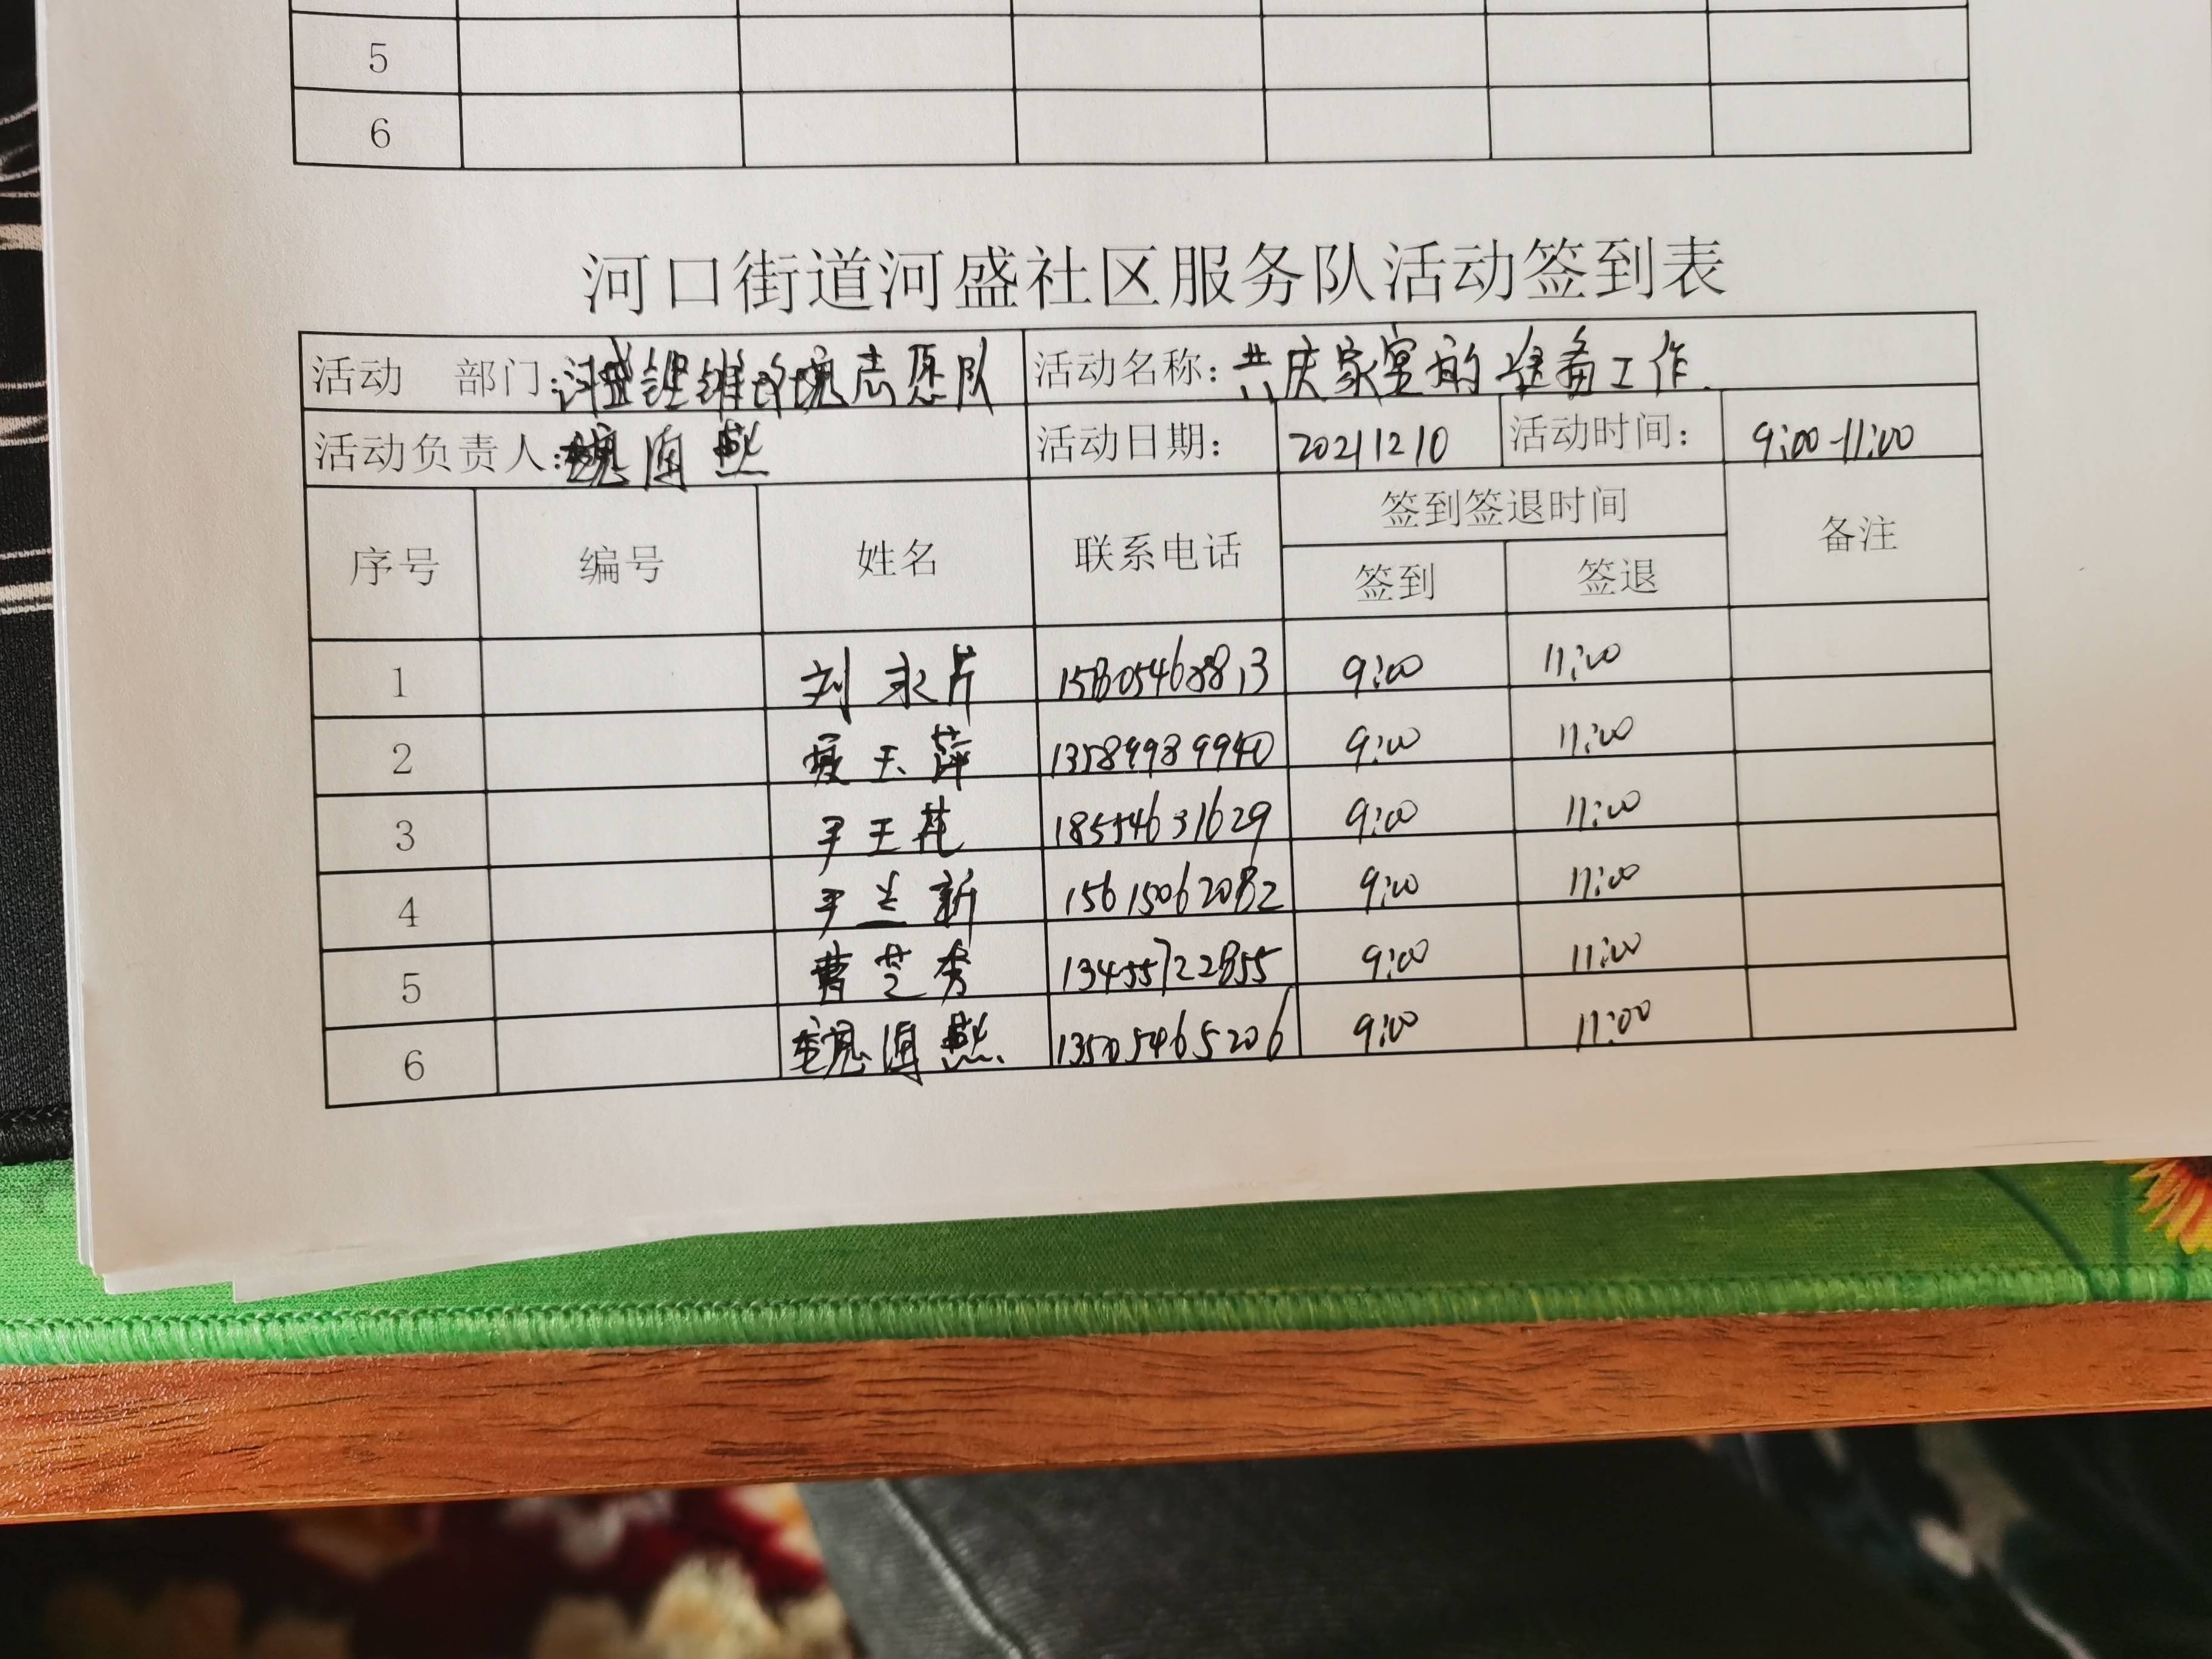 5
6
河口街道河盛社区服务队活动签到表
活动 部门: 志愿队 活动名称: 共庆家宴的准备工作.
活动负责人: 魏海燕 活动日期: 20211210 活动时间: 9:00-11:00
序号 编号 姓名 联系电话 签到签退时间 备注
签到 签退
1 刘永芹 9:00 11:00
2 聂玉萍 13589989940 9:00 11:00
3 尹玉花 18554631629 9:00 11:00
4 尹兰新 15615062082 9:00 11:00
5 曹芝秀 13455722855 9:00 11:00
6 魏海燕 13505465206 9:00 11:00